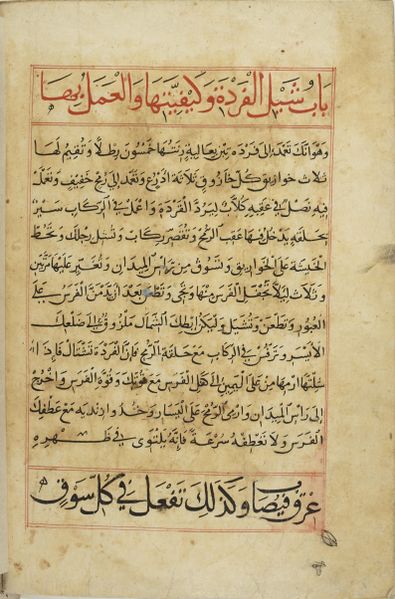 باب شيل الفردة وكيفيتها والعمل بها
وهو انك تعمد الى فردة تبن بعالية زنتها خمسون رطلا وتقيم لها
ثلاث خوازيق كل خازوق ثلاثة اذرع وتعمد الى رمح خفيف وتعمل
فيه نصل في عقبه كلاب ليرد الفردة واعمل في الركاب سير
بحلقه يدخل فيها عقب الرمح وتقصر ركاب وتشيل رجلك وتحط
الخيشة على الخوازيق وتسوق من راس الميدان وتعبر عليها مرتين
وثلاث ليلا تجفل الفرس منها وتجي وتطلع بعد ادمن الفرس على
العبور وتطعن وتشيل وليكن ابطك الشمال ملزوق الى ضلعك
الايسر وترفس في الركاب مع حلقة الرمح فان الفردة تنشال فاذا
شلتها ارمها من على اليمين الى كفل الفرس مع قوتك وقوة الفرس واخرج
الى راس الميدان وارمي الرمح على اليسار وخد وارد به مع عطفك
الفرس ولا تعطفه سرعة فانه يلتوى في ظهره
عرق فيصاب وكذلك تفعل في كل سوق